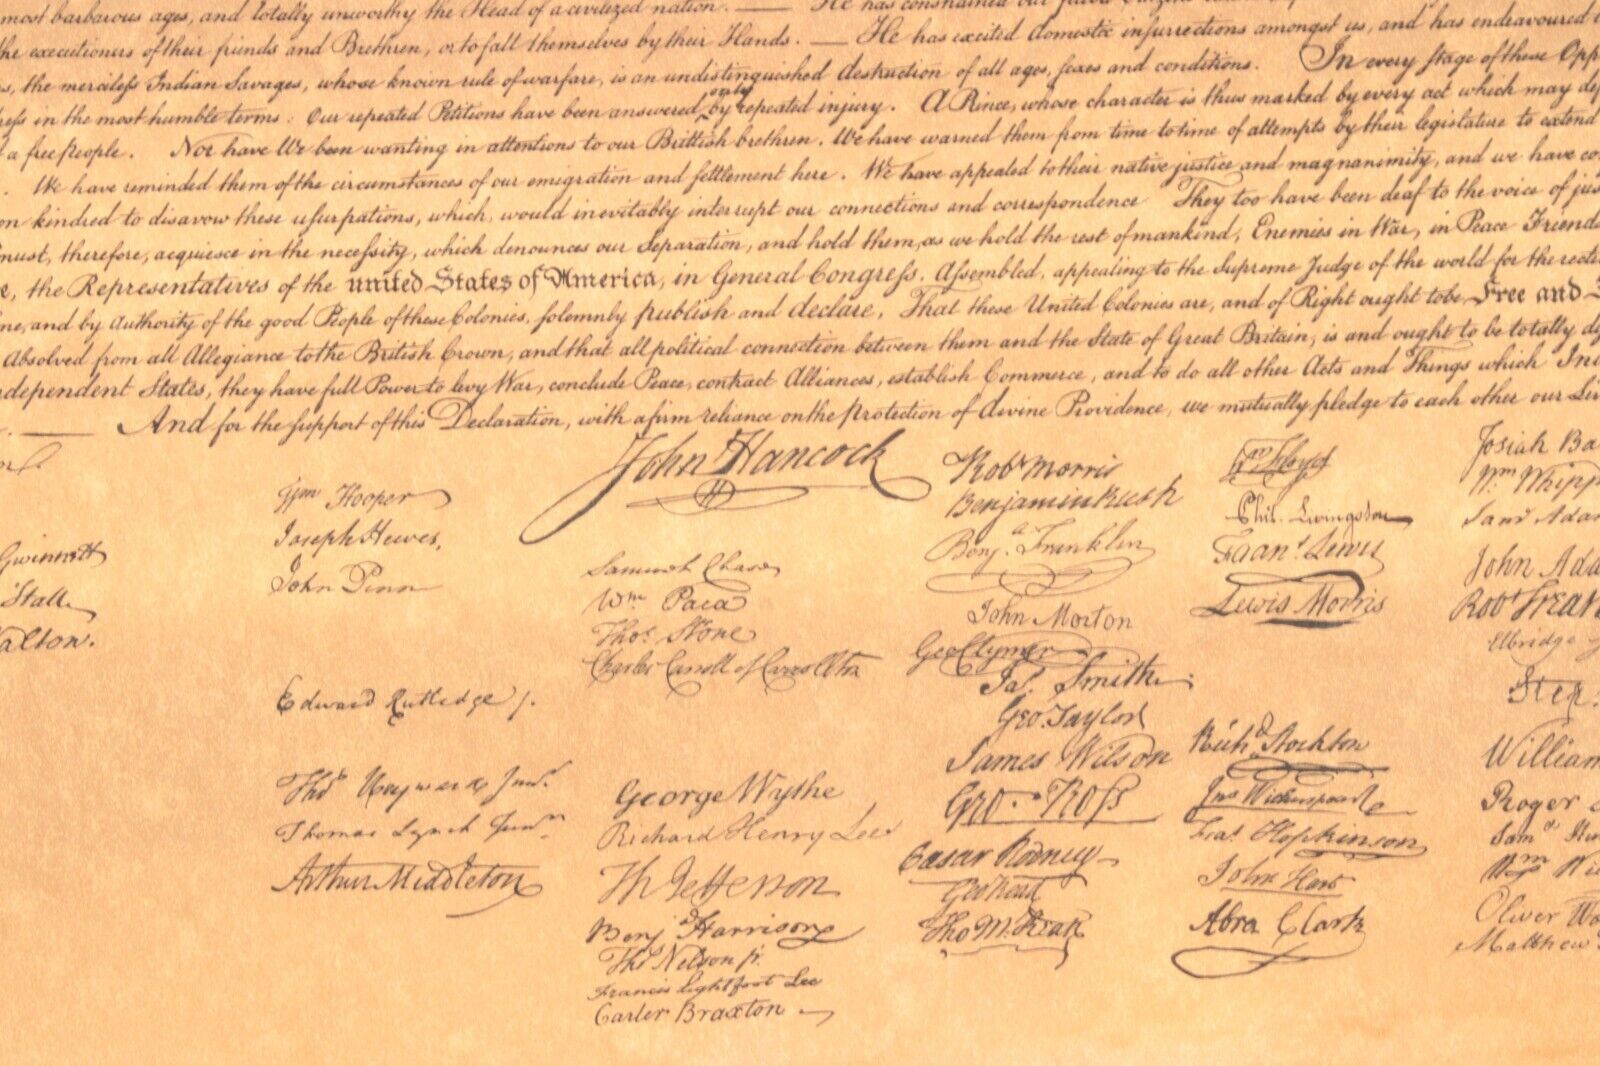 most barbarous ages, and totally unworthy the Head of a civilized nation. — He has constrained our fellow Citizens
the executioners of their friends and Brethren, or to fall themselves by their Hands. — He has excited domestic insurrections amongst us, and has endeavoured
the merciless Indian Savages, whose known rule of warfare, is an undistinguished destruction of all ages, sexes and conditions. In every stage of these
in the most humble terms: Our repeated Petitions have been answered only by repeated injury. A Prince, whose character is thus marked by every act which may
a free people. Nor have We been wanting in attentions to our Brittish brethren. We have warned them from time to time of attempts by their legislature to extend
We have reminded them of the circumstances of our emigration and settlement here. We have appealed to their native justice and magnanimity, and we have
kindred to disavow these usurpations, which, would inevitably interrupt our connections and correspondence They too have been deaf to the voice of
must, therefore, acquiesce in the necessity, which denounces our Separation, and hold them, as we hold the rest of mankind, Enemies in War, in Peace
the Representatives of the united States of America, in General Congress, Assembled, appealing to the Supreme Judge of the world for the
and by Authority of the good People of these Colonies, solemnly publish and declare, That these United Colonies are, and of Right ought to be Free and
Absolved from all Allegiance to the British Crown, and that all political connection between them and the State of Great Britain, is and ought to be totally
States, they have full Power to levy War, conclude Peace, contract Alliances, establish Commerce, and to do all other Acts and Things which
— And for the support of this Declaration, with a firm reliance on the protection of divine Providence, we mutually pledge to each other our
Gwinnett
Hall
Walton.
Wm Hooper
Joseph Hewes,
John Penn
Edward Rutledge /.
Thos Heyward Junr.
Thomas Lynch Junr.
Arthur Middleton
John Hancock
Samuel Chase
Wm. Paca
Thos. Stone
Charles Carroll of Carrollton
George Wythe
Richard Henry Lee
Th Jefferson
Benja Harrison
Thos Nelson jr.
Francis Lightfoot Lee
Carter Braxton
Robt Morris
Benjamin Rush
Benja. Franklin
John Morton
Geo Clymer
Jas. Smith
Geo. Taylor
James Wilson
Geo. Ross
Caesar Rodney
Geo Read
Tho M:Kean
Wm Floyd
Phil. Livingston
Frans. Lewis
Lewis Morris
Richd. Stockton
Jno Witherspoon
Fras. Hopkinson
John Hart
Abra Clark
Josiah
Wm.
Saml
John
Robt
Elbridge
Step.
William
Roger
Saml
Wm
Oliver
Matthew